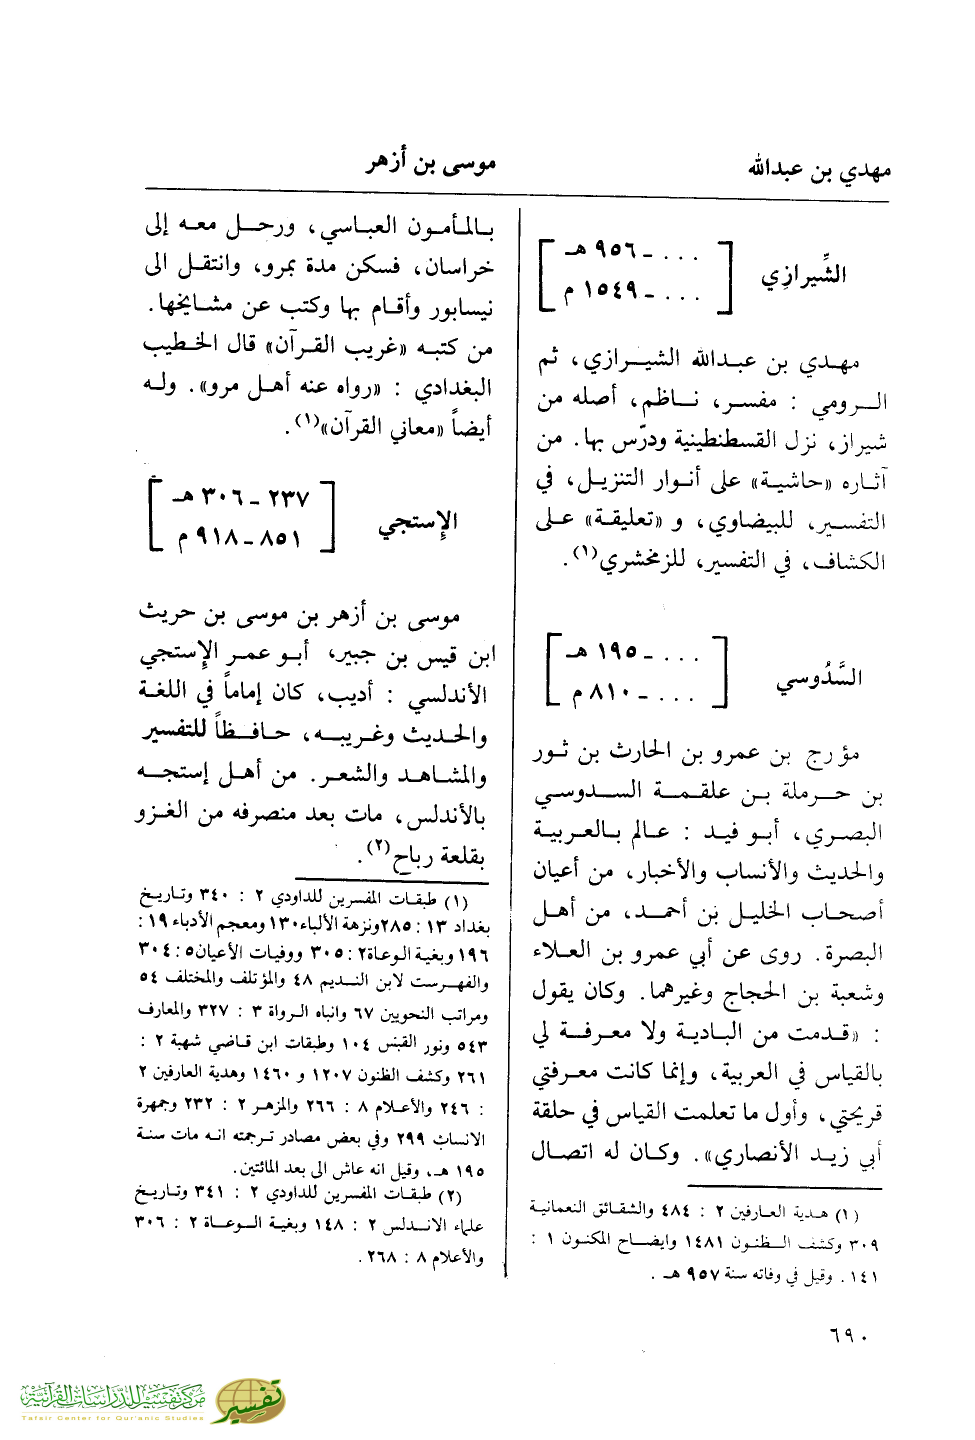 مهدي بن عبدالله
موسى بن أزهر
الشِّيرازِي
[ . . . ـ ٩٥٦ هـ
. . . ـ ١٥٤٩ م ]
مهدي بن عبدالله الشيرازي، ثم
الرومي : مفسر، ناظم، أصله من
شيراز، نزل القسطنطينية ودرّس بها. من
آثاره «حاشية» على أنوار التنزيل، في
التفسير، للبيضاوي، و «تعليقة» على
الكشاف، في التفسير، للزمخشري(١).
السَّدُوسي
[ . . . ـ ١٩٥ هـ
. . . ـ ٨١٠ م ]
مؤرج بن عمرو بن الحارث بن ثور
بن حرملة بن علقمة السدوسي
البصري، أبو فيد : عالم بالعربية
والحديث والأنساب والأخبار، من أعيان
أصحاب الخليل بن أحمد، من أهل
البصرة. روى عن أبي عمرو بن العلاء
وشعبة بن الحجاج وغيرهما. وكان يقول
: «قدمت من البادية ولا معرفة لي
بالقياس في العربية، وإنما كانت معرفتي
قريحتي، وأول ما تعلمت القياس في حلقة
أبي زيد الأنصاري». وكان له اتصال
(١) هدية العارفين ٢ : ٤٨٤ والشقائق النعمانية
٣٠٩ وكشف الظنون ١٤٨١ وايضاح المكنون ١ :
١٤١. وقيل في وفاته سنة ٩٥٧ هـ .
بالمأمون العباسي، ورحل معه إلى
خراسان، فسكن مدة بمرو، وانتقل الى
نيسابور وأقام بها وكتب عن مشايخها.
من كتبه «غريب القرآن» قال الخطيب
البغدادي : «رواه عنه أهل مرو». وله
أيضاً «معاني القرآن»(١).
الإستجي
[ ٢٣٧ ـ ٣٠٦ هـ
٨٥١ ـ ٩١٨ م ]
موسى بن أزهر بن موسى بن حريث
ابن قيس بن جبير، أبو عمر الإستجي
الأندلسي : أديب، كان إماماً في اللغة
والحديث وغريبه، حافظاً للتفسير
والمشاهد والشعر. من أهل إستجه
بالأندلس، مات بعد منصرفه من الغزو
بقلعة رباح(٢).
(١) طبقات المفسرين للداودي ٢ : ٣٤٠ وتاريخ
بغداد ١٣ : ٢٨٥ونزهة الألباء١٣٠ ومعجم الأدباء ١٩ :
١٩٦ وبغية الوعاة٢ : ٣٠٥ ووفيات الأعيان٥ : ٣٠٤
والفهرست لابن النديم ٤٨ والمؤتلف والمختلف ٥٤
ومراتب النحويين ٦٧ وانباه الرواة ٣ : ٣٢٧ والمعارف
٥٤٣ ونور القبس ١٠٤ وطبقات ابن قاضي شهبة ٢ :
٢٦١ وكشف الظنون ١٢٠٧ و ١٤٦٠ وهدية العارفين ٢
: ٢٤٦ والأعلام ٨ : ٢٦٦ والمزهر ٢ : ٢٣٢ وجمهرة
الانساب ٢٩٩ وفي بعض مصادر ترجمته انه مات سنة
١٩٥ هـ، وقيل انه عاش الى بعد المائتين.
(٢) طبقات المفسرين للداودي ٢ : ٣٤١ وتاريخ
علماء الاندلس ٢ : ١٤٨ وبغية الوعاة ٢ : ٣٠٦
والأعلام ٨ : ٢٦٨.
٦٩٠
مركز تفسير للدراسات القرآنية
Tafsir Center for Qur'anic Studies
تفسير